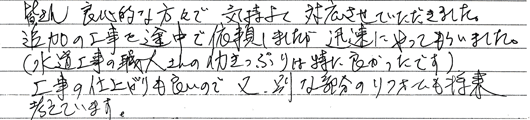 皆さん 良心的な方々で 気持よく 対応させていただきました。
追加の工事を途中で依頼しましたが 迅速にやってもらいました。
(水道工事の職人さんの働きっぷりは特に良かったです)
工事の仕上がりも良いので 又、別な部分のリフォームも将来
考えています。